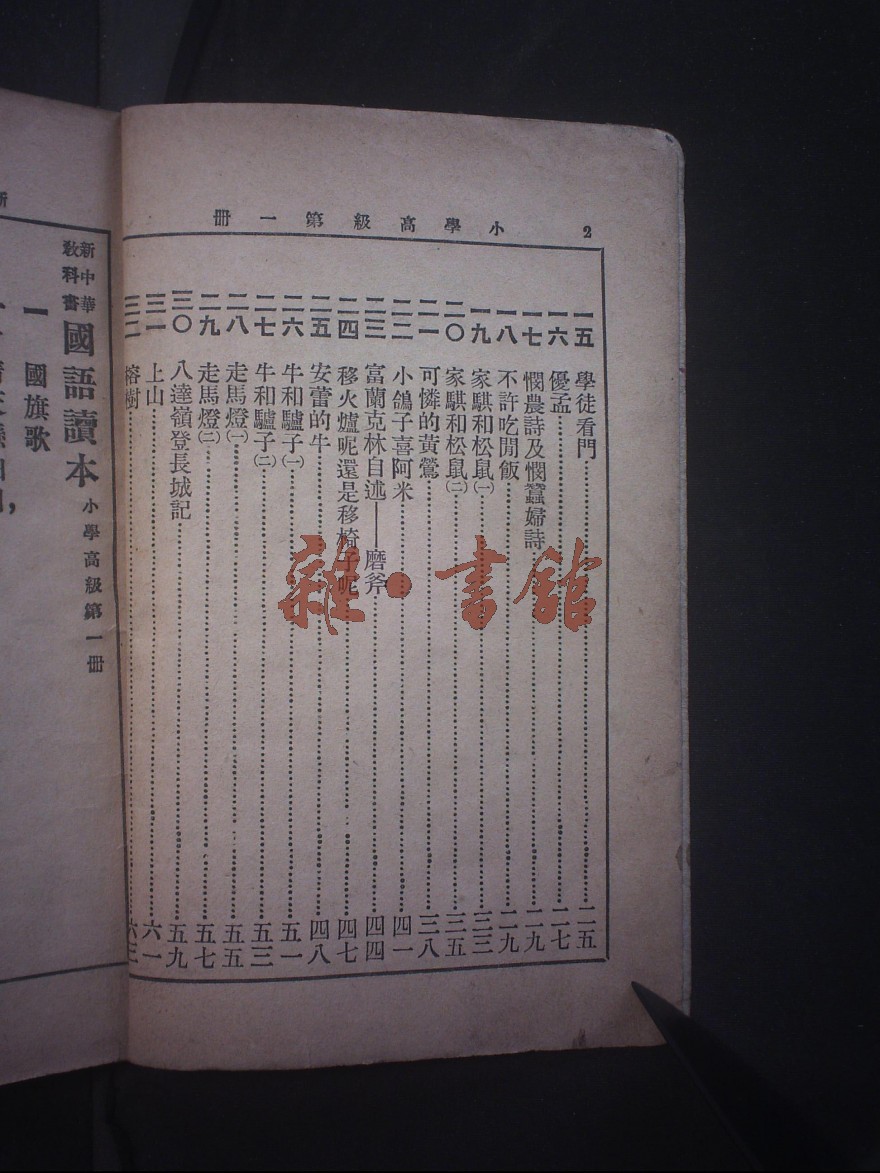 小學高級第一冊
2
一五 學徒看門 二五
一六 優孟 二七
一七 憫農詩及憫蠶婦詩 二九
一八 不許吃閒飯 二九
一九 家騏和松鼠(一) 三三
二〇 家騏和松鼠(二) 三五
二一 可憐的黃鶯 三八
二二 小鴿子喜阿米 四一
二三 富蘭克林自述——磨斧 四四
二四 移火爐呢還是移椅子呢 四七
二五 安蕾的牛 四八
二六 牛和驢子(一) 五一
二七 牛和驢子(二) 五三
二八 走馬燈(一) 五五
二九 走馬燈(二) 五七
三〇 八達嶺登長城記 五九
三一 上山 六一
三二 榕樹 六三
新中華
教科書
國語讀本
小學高級第一冊
一 國旗歌
雜·書館